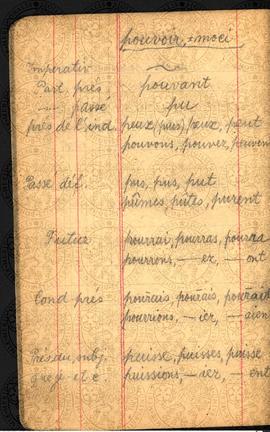 pouvoir, = moci
Imperativ ~
Part. prés. pouvant
— passé pu
prés de l'ind. peux (puis), peux, peut
pouvons, pouvez, peuvent
Passé déf. pus, pus, put
pûmes, pûtes, purent
Futur pourrai, pourras, pourra
pourrons, — ez, — ont
Cond prés pourrais, pourrais, pourrait
pourrions, — iez, — aient
Prés du subj. puisse, puisses, puisse
que je et c. puissions, — iez, — ent